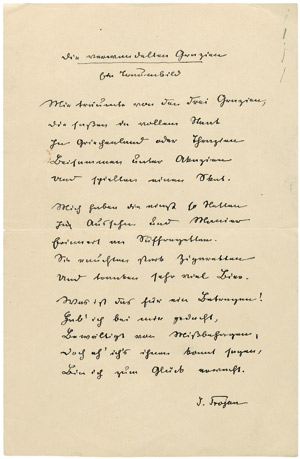 Die verwandelten Grazien
Ein Traumbild
Mir träumte von den drei Grazien,
Die saßen in vollem Staat
In Griechenland oder Thrazien
Beisammen unter Akazien
Und spielten einen Skat.
Mich haben die einst so Netten
In Aussehn und Manier
Erinnert an Suffragetten.
Sie rauchten stark Zigaretten
Und tranken sehr viel Bier.
Was ist das für ein Betragen!
Hab' ich bei mir gedacht,
Bewältigt von Mißbehagen,
Doch eh' ich's ihnen konnt sagen,
Bin ich zum Glück erwacht.
J. Trojan